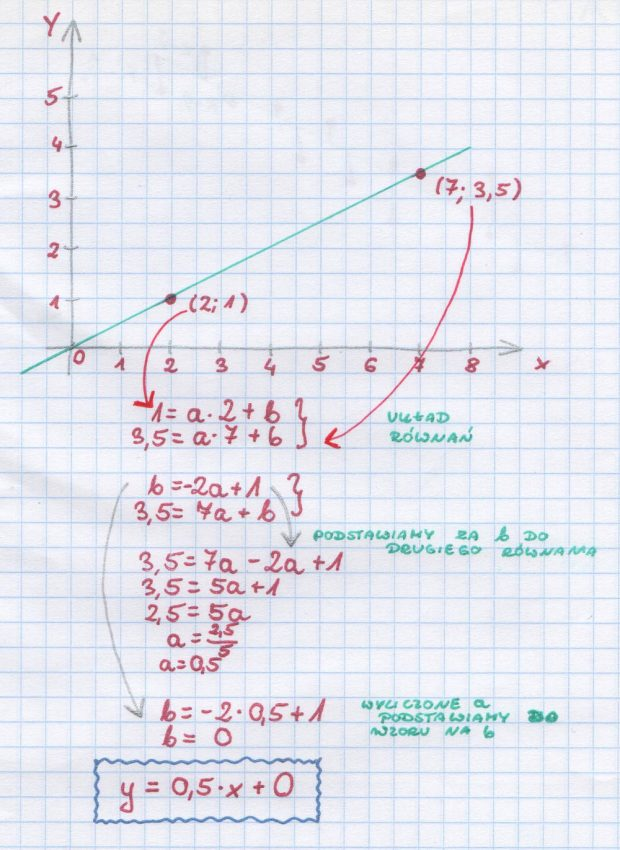 Y
5
4
3
2
1
0 1 2 3 4 5 6 7 8 x
(7; 3,5)
(2; 1)
1 = a · 2 + b }
3,5 = a · 7 + b
UKŁAD
RÓWNAŃ
b = -2a + 1 }
3,5 = 7a + b
PODSTAWIAMY ZA b DO
DRUGIEGO RÓWNANIA
3,5 = 7a - 2a + 1
3,5 = 5a + 1
2,5 = 5a
a = 2,5/5
a = 0,5
b = -2 · 0,5 + 1
b = 0
WYLICZONE a
PODSTAWIAMY DO
WZORU NA b
y = 0,5 · x + 0